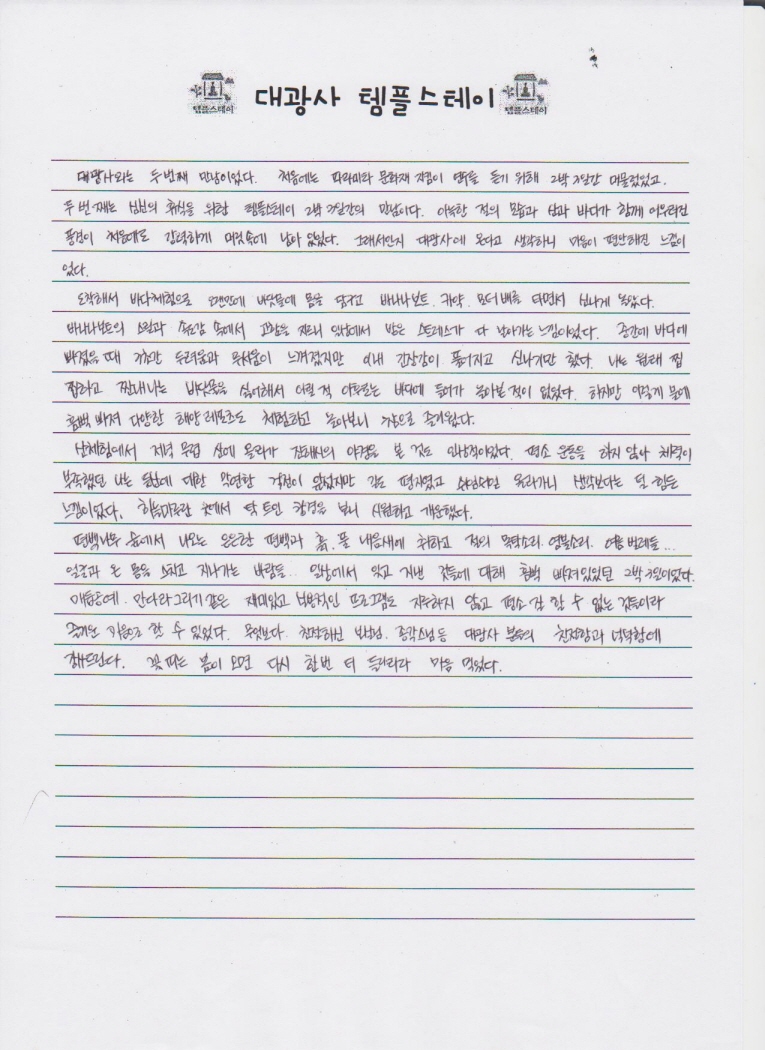 대광사 템플스테이
템플스테이
템플스테이
대광사와는 두번째 만남이었다. 처음에는 파라미타 문화재 지킴이 연수를 듣기 위해 2박 3일간 머물렀었고.
두번째는 심신의 휴식을 위한 템플스테이 2박 3일간의 만남이다. 아늑한 절의 모습과 산과 바다가 함께 어우러진
풍경이 처음대로 강력하게 머릿속에 남아 있었다. 그래서인지 대광사에 온다고 생각하니 마음이 편안해진 느낌이
었다.
도착해서 바다체험으로 오랜만에 바닷물에 몸을 담구고 바나나보트. 카약. 모터배를 타면서 신나게 놀았다.
바나나보트의 스릴과 속도감 속에서 고함을 지르니 일상에서 받은 스트레스가 다 날아가는 느낌이었다. 중간에 바다에
빠졌을 때 기초간 두려움과 무서움이 느껴졌지만 이내 긴장감이 풀어지고 신나기만 했다. 나는 원래 찝
찝하고 짠내나는 바닷물을 싫어해서 어릴 적 이후로는 바다에 들어가 놀아본 적이 없었다. 하지만 이렇게 물에
흠뻑 빠져 다양한 해양 레포츠도 체험하고 놀아보니 가슴으로 즐거웠다.
산체험에서 저녁 무렵 산에 올라가 진해시의 야경을 본 것도 인상적이었다. 평소 운동을 하지 않아 체력이
부족했던 나는 등산에 대한 막연한 걱정이 앞섰지만 길은 편지였고 올라가니 생각보다는 덜 힘든
느낌이었다. 하늘마루란 곳에서 탁 트인 광경을 보니 시원하고 개운했다.
편백나무 숲에서 나오는 은은한 편백과 흙, 풀 내음새에 취하고 절의 목탁소리. 염불소리. 여름 벌레들...
얼굴과 온 몸을 스치고 지나가는 바람들... 일상에서 잊고 지낸 것들에 대해 흠뻑 빠져있었던 2박 3일이었다.
매듭공예. 만다라그리기 같은 재미있고 실용적인 프로그램도 지루하지 않고 평소 잘 할 수 없는 것들이라
즐거운 마음으로 할 수 있었다. 무엇보다. 친절하신 종각스님 등 대광사 분들의 친절함과 넉넉함에
감사드린다. 꽃 피는 봄이 오면 다시 한번 더 들리리라 마음 먹었다.